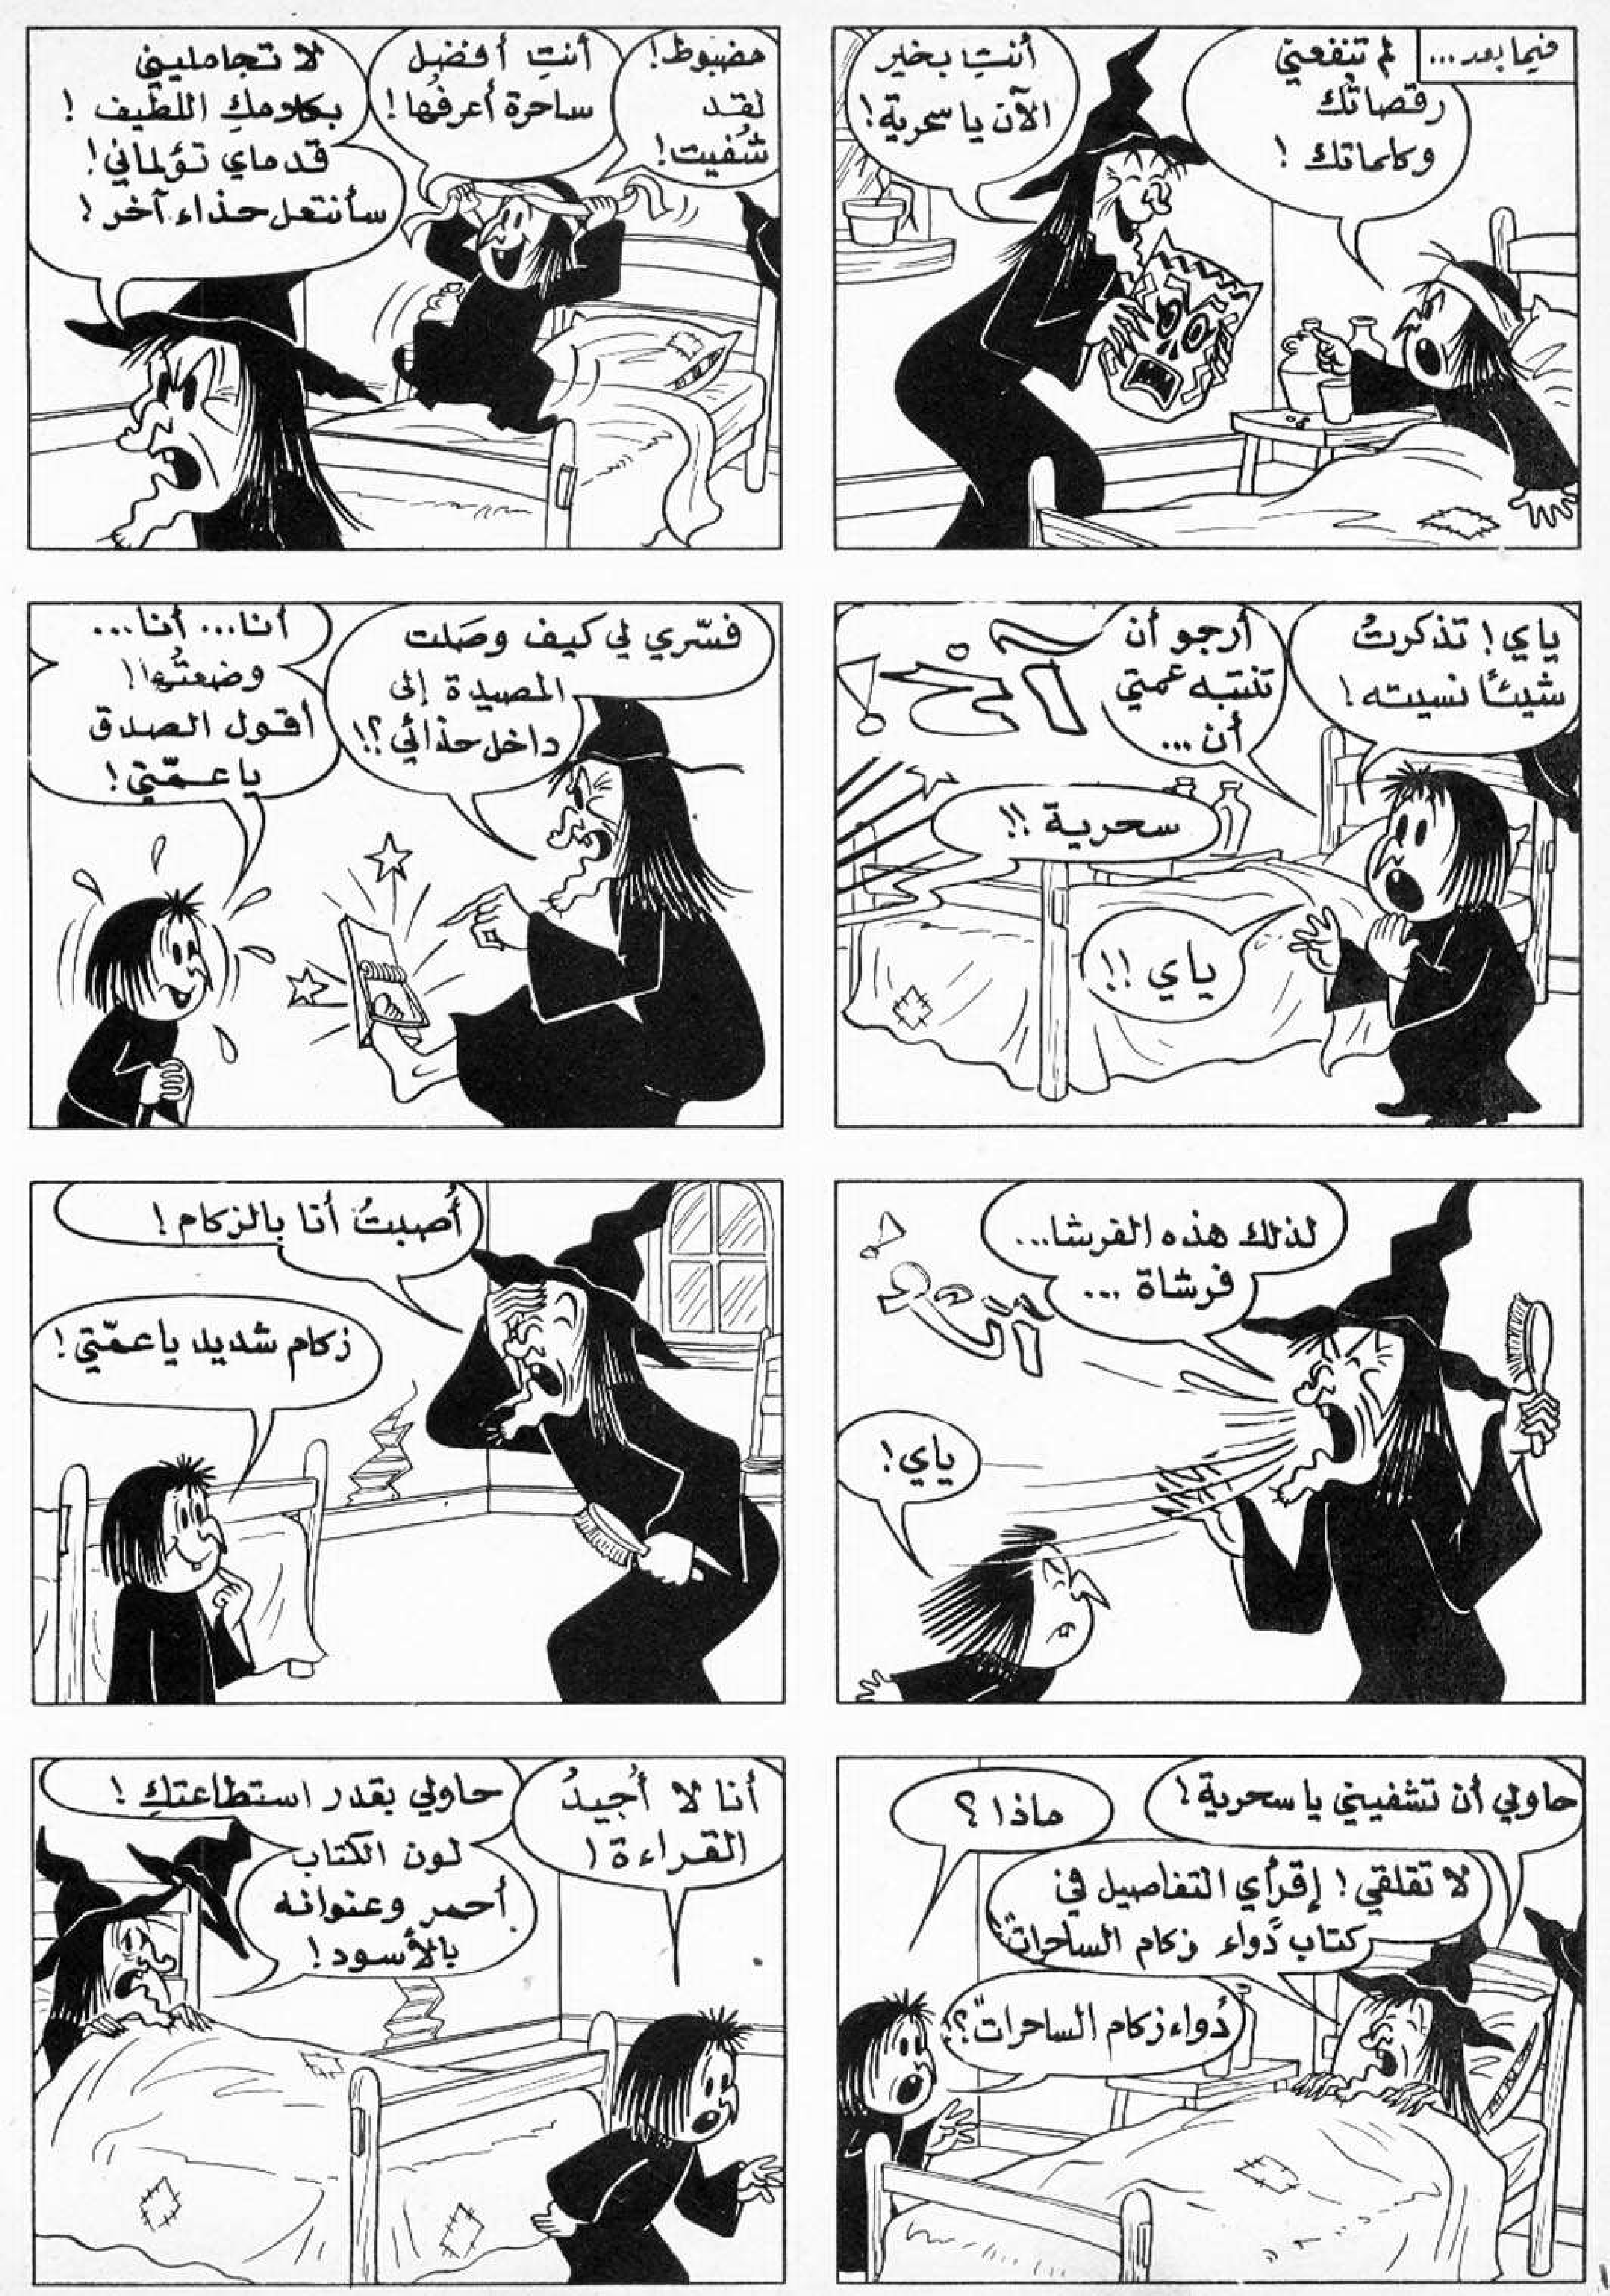 فيما بعد...
لم تنفعني
رقصاتك
وكلماتك !
أنتِ بخير
الآن يا سحرية!
مضبوط!
لقد
شُفيت!
أنتِ أفضل
ساحرة أعرفها!
لا تجامليني
بكلامكِ اللطيف !
قدماي تؤلماني!
سأنتعل حذاء آخر !
ياي! تذكرتُ
شيئاً نسيته!
أرجو أن
تنتبه عمتي
أن ...
آخ!
سحرية !!
ياي !!
فسّري لي كيف وصَلت
المصيدة إلى
داخل حذائي؟!
أنا... أنا...
وضعتُها!
أقول الصدق
يا عمّتي!
لذلك هذه الفرشا...
فرشاة ...
ياي!
أُصبتُ أنا بالزكام !
زكام شديد يا عمّتي!
حاولي أن تشفيني يا سحرية!
ماذا ؟
لا تقلقي! إقرأي التفاصيل في
كتاب "دواء زكام الساحرات"
"دواء زكام الساحرات"؟
أنا لا أُجيدُ
القراءة!
حاولي بقدر استطاعتكِ !
لون الكتاب
أحمر وعنوانه
بالأسود!